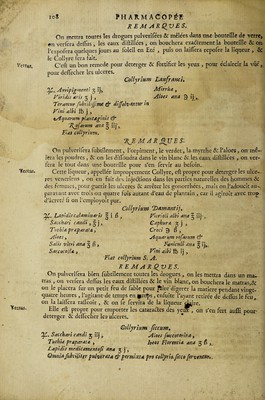 108 PHARMACOPÉE
REMARQUES.
On mettra toutes les drogues pulverisées & mêlées dans une bouteille de verre,
on versera dessus, les eaux distillées, on bouchera exactement la bouteille & on
l'exposera quelques jours au soleil en Esté, puis on laissera reposer la liqueur, &
le Collyre sera fait.
Vertus. C'est un bon remede pour deterger & fortifier les yeux, pour éclaircir la vûë,
pour dessécher les ulceres.
Collyrium Lanfranci.
℞. Auripigmenti ʒ ij,
Viridis æris ʒ j,
Mirrhæ,
Aloes ana ℈ ij,
Terantur subtilissime & dissolvantur in
Vini albi ℔ j,
Aquarum plantaginis &
Rosarum ana ℥ iij,
Fiat collyrium.
REMARQUES.
On pulverisera subtilement, l'orpiment, le verdet, la myrrhe & l'aloes, on mê-
lera les poudres, & on les dissoudra dans le vin blanc & les eaux distillées, on ver-
sera le tout dans une bouteille pour s'en servir au besoin.
Vertus. Cette liqueur, appellée improprement Collyre, est propre pour deterger les ulce-
res veneriens, on en fait des injections dans les parties naturelles des hommes &
des femmes, pour guerir les ulceres & arrêter les gonorrhées, mais on l'adoucit au-
paravant avec trois ou quatre fois autant d'eau de plantain, car il agiroit avec trop
d'âcreté si on l'employoit pur.
Collyrium Damantii.
℞. Lapidis calaminaris
Sacchari candi, ʒ j,
Tuthia preparata,
Aloes,
Salis vitri ana ʒ ß,
Sarcocolla,
Vitrioli albi ana
Caphura ʒ j,
Croci
Aquarum rosarum &
Fœniculi ana
Vini albi
Fiat collyrium S. A.
REMARQUES.
On pulverisera bien subtilement toutes les drogues, on les mettra dans un ma-
tras, on versera dessus les eaux distillées & le vin blanc, on bouchera le matras, &
on le placera sur un petit feu de sable pour faire digerer la matiere pendant vingt-
quatre heures, l'agitant de temps en temps, ensuite l'ayant retirée de dessus le feu,
on la laissera rassoir, & on se servira de la liqueur claire.
Vertus. Elle est propre pour emporter les cataractes des yeux, on s'en sert aussi pour
deterger & dessecher les ulceres.
Collyrium siccum.
℞. Sacchari candi ʒ iij,
Tuthia preparata,
Lapidis medicamentosi ana ʒ j,
Aloes succotrina,
Ireos Florentia ana ʒ ß,
Omnia subtiliter pulverata & permixta pro collyrio sicco serventur.